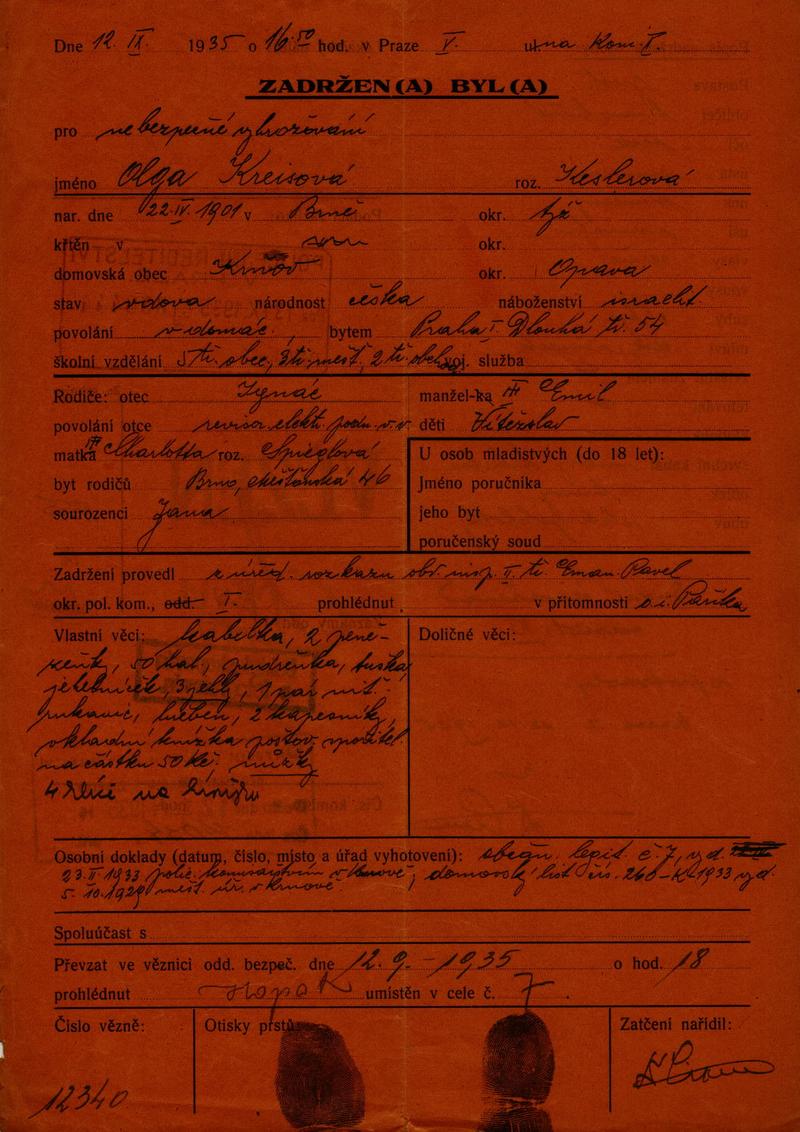 Dne 12. IX. 1935 o 16·50 hod. v Praze V. Kom. I.
ZADRŽEN(A) BYL(A)
pro nebezpečné vyhrožování
jméno Olga Kreisová roz. Keslerová
nar. dne 22. IV. 1901 v Brně okr. týž
křtěn v okr.
domovská obec Krnov okr. Opava
stav vdova národnost česká náboženství israelit.
povolání v domác. bytem Praha I. Dlouhá tř. 54
školní vzdělání 5 tř. obec, 3 tř. měšť, 2 tř. obchod. voj. služba
Rodiče: otec Ignác manžel-ka Emil
povolání otce revisor elektr. podn. v. v. děti Vítězslav
matka Charlotta roz. Spieglová U osob mladistvých (do 18 let):
byt rodičů Brno, Měšťanská 46 Jméno poručníka
sourozenci Jana jeho byt
poručenský soud
Zadržení provedl z úřed. rozkazu obv. insp. II. tř. Eman. Pavel
okr. pol. kom., odd. I. prohlédnut v přítomnosti o. i. Paříka
Vlastní věci: kabelka, 2 peně- Doličné věci:
ženky, 50 hal., pudřenka, tužka,
jehelníček, 3 jehly, 1 pár nit.
rukavic, hřeben, 2 kapesníky,
vkladní knížka poštov. spořitel.
na částku 50 Kč. nůžky
4 klíče na kroužku
Osobní doklady (datum, číslo, místo a úřad vyhotovení): občan. legit. č. 7, vyd.
23. II. 1933 polic. komisařstvím v Krnově; domovský list čís. 260-K-1933 vyd.
5. 10. 1929 měst. úř. v Krnově.
Spoluúčast s
Převzat ve věznici odd. bezpeč. dne 12. 9. - 1935 o hod. 18
prohlédnut umístěn v cele č. 7.
Číslo vězně: Otisky prstů Zatčení nařídil:
12340